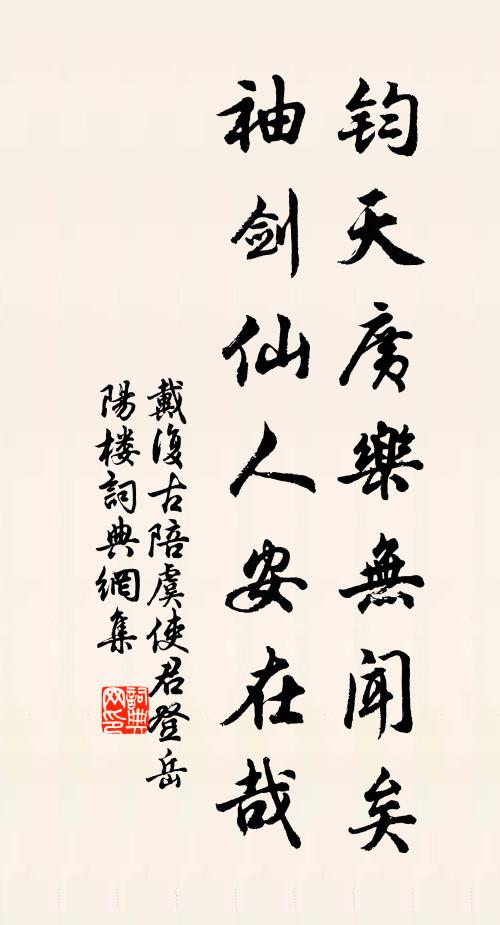 钧天廣樂無聞矣
袖剑仙人安在哉
戴復古陪虞使君登岳
陽楼詞典網集
詞典
网印